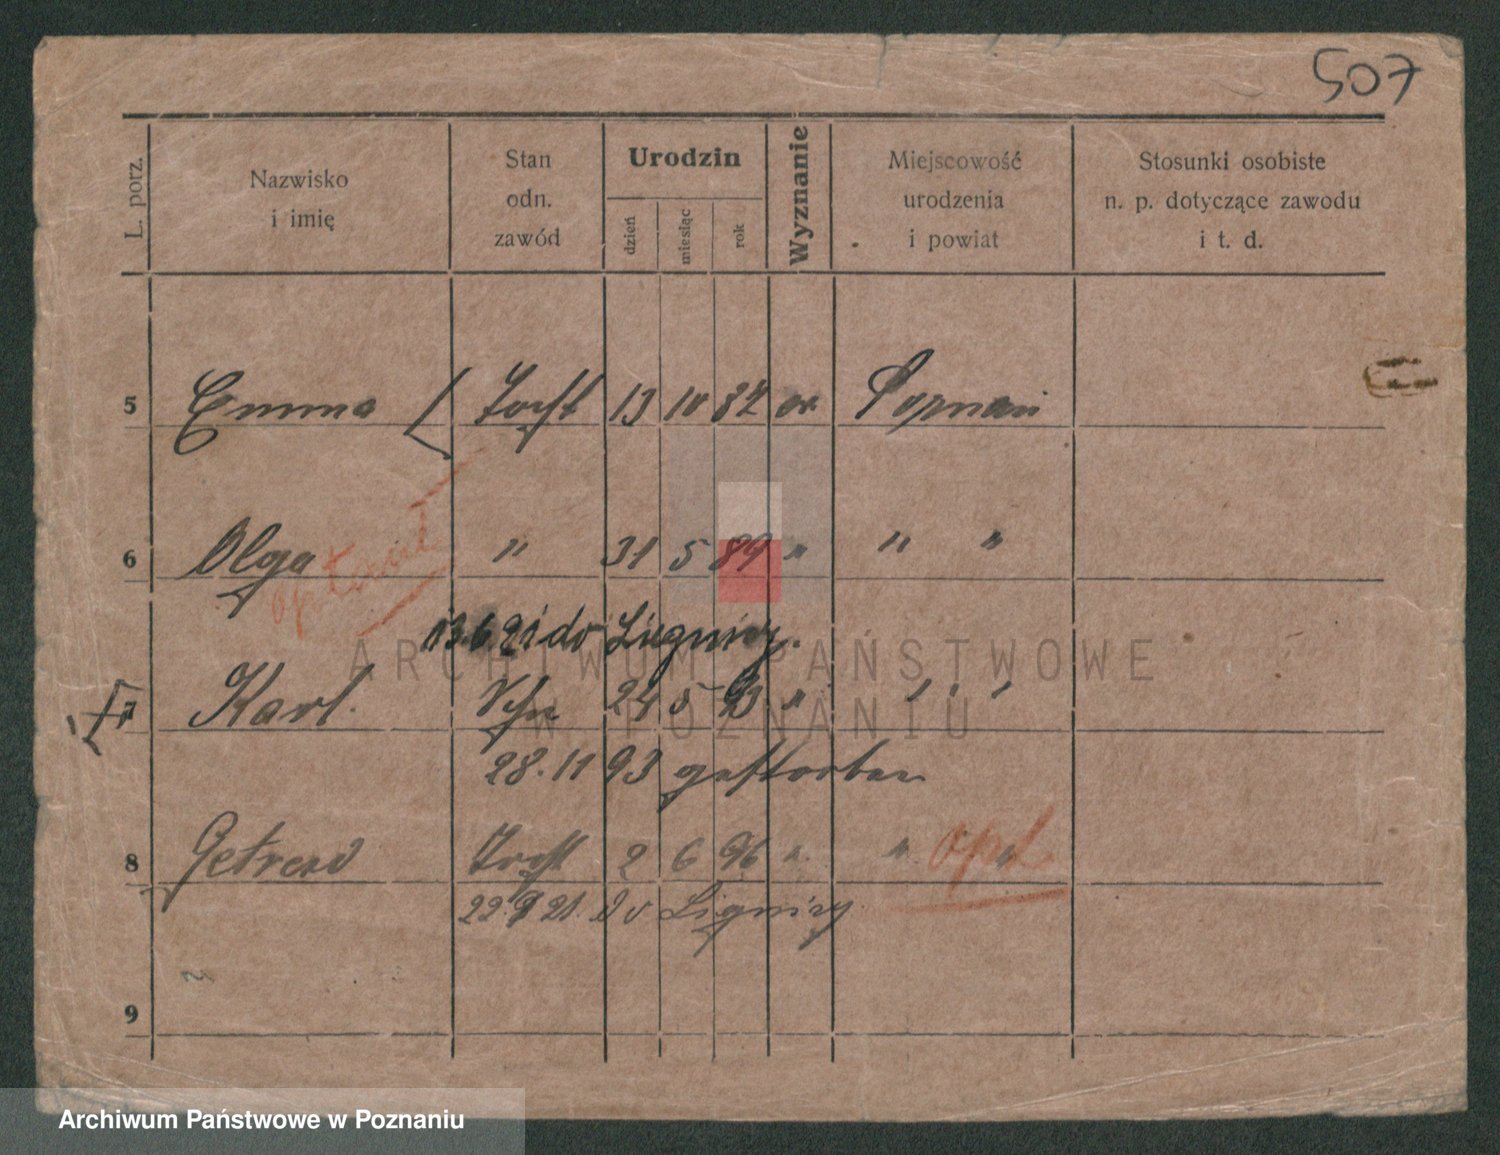 507
L. porz.
Nazwisko
i imię
Stan
odn.
zawód
Urodzin
dzień
miesiąc
rok
Wyznanie
Miejscowość
urodzenia
i powiat
Stosunki osobiste
n. p. dotyczące zawodu
i t. d.
5 Emma 13 10 87 ev Poznań
6 Olga " 31 5 89 " " "
13.6.21 do Liegnicy.
7 Karl. 24 5 93 " " "
28.11 93 gestorben
8 2 6 96 " " " opt
22.9 21. do Lignicy
9
ARCHIWUM PAŃSTWOWE
W POZNANIU
Archiwum Państwowe w Poznaniu